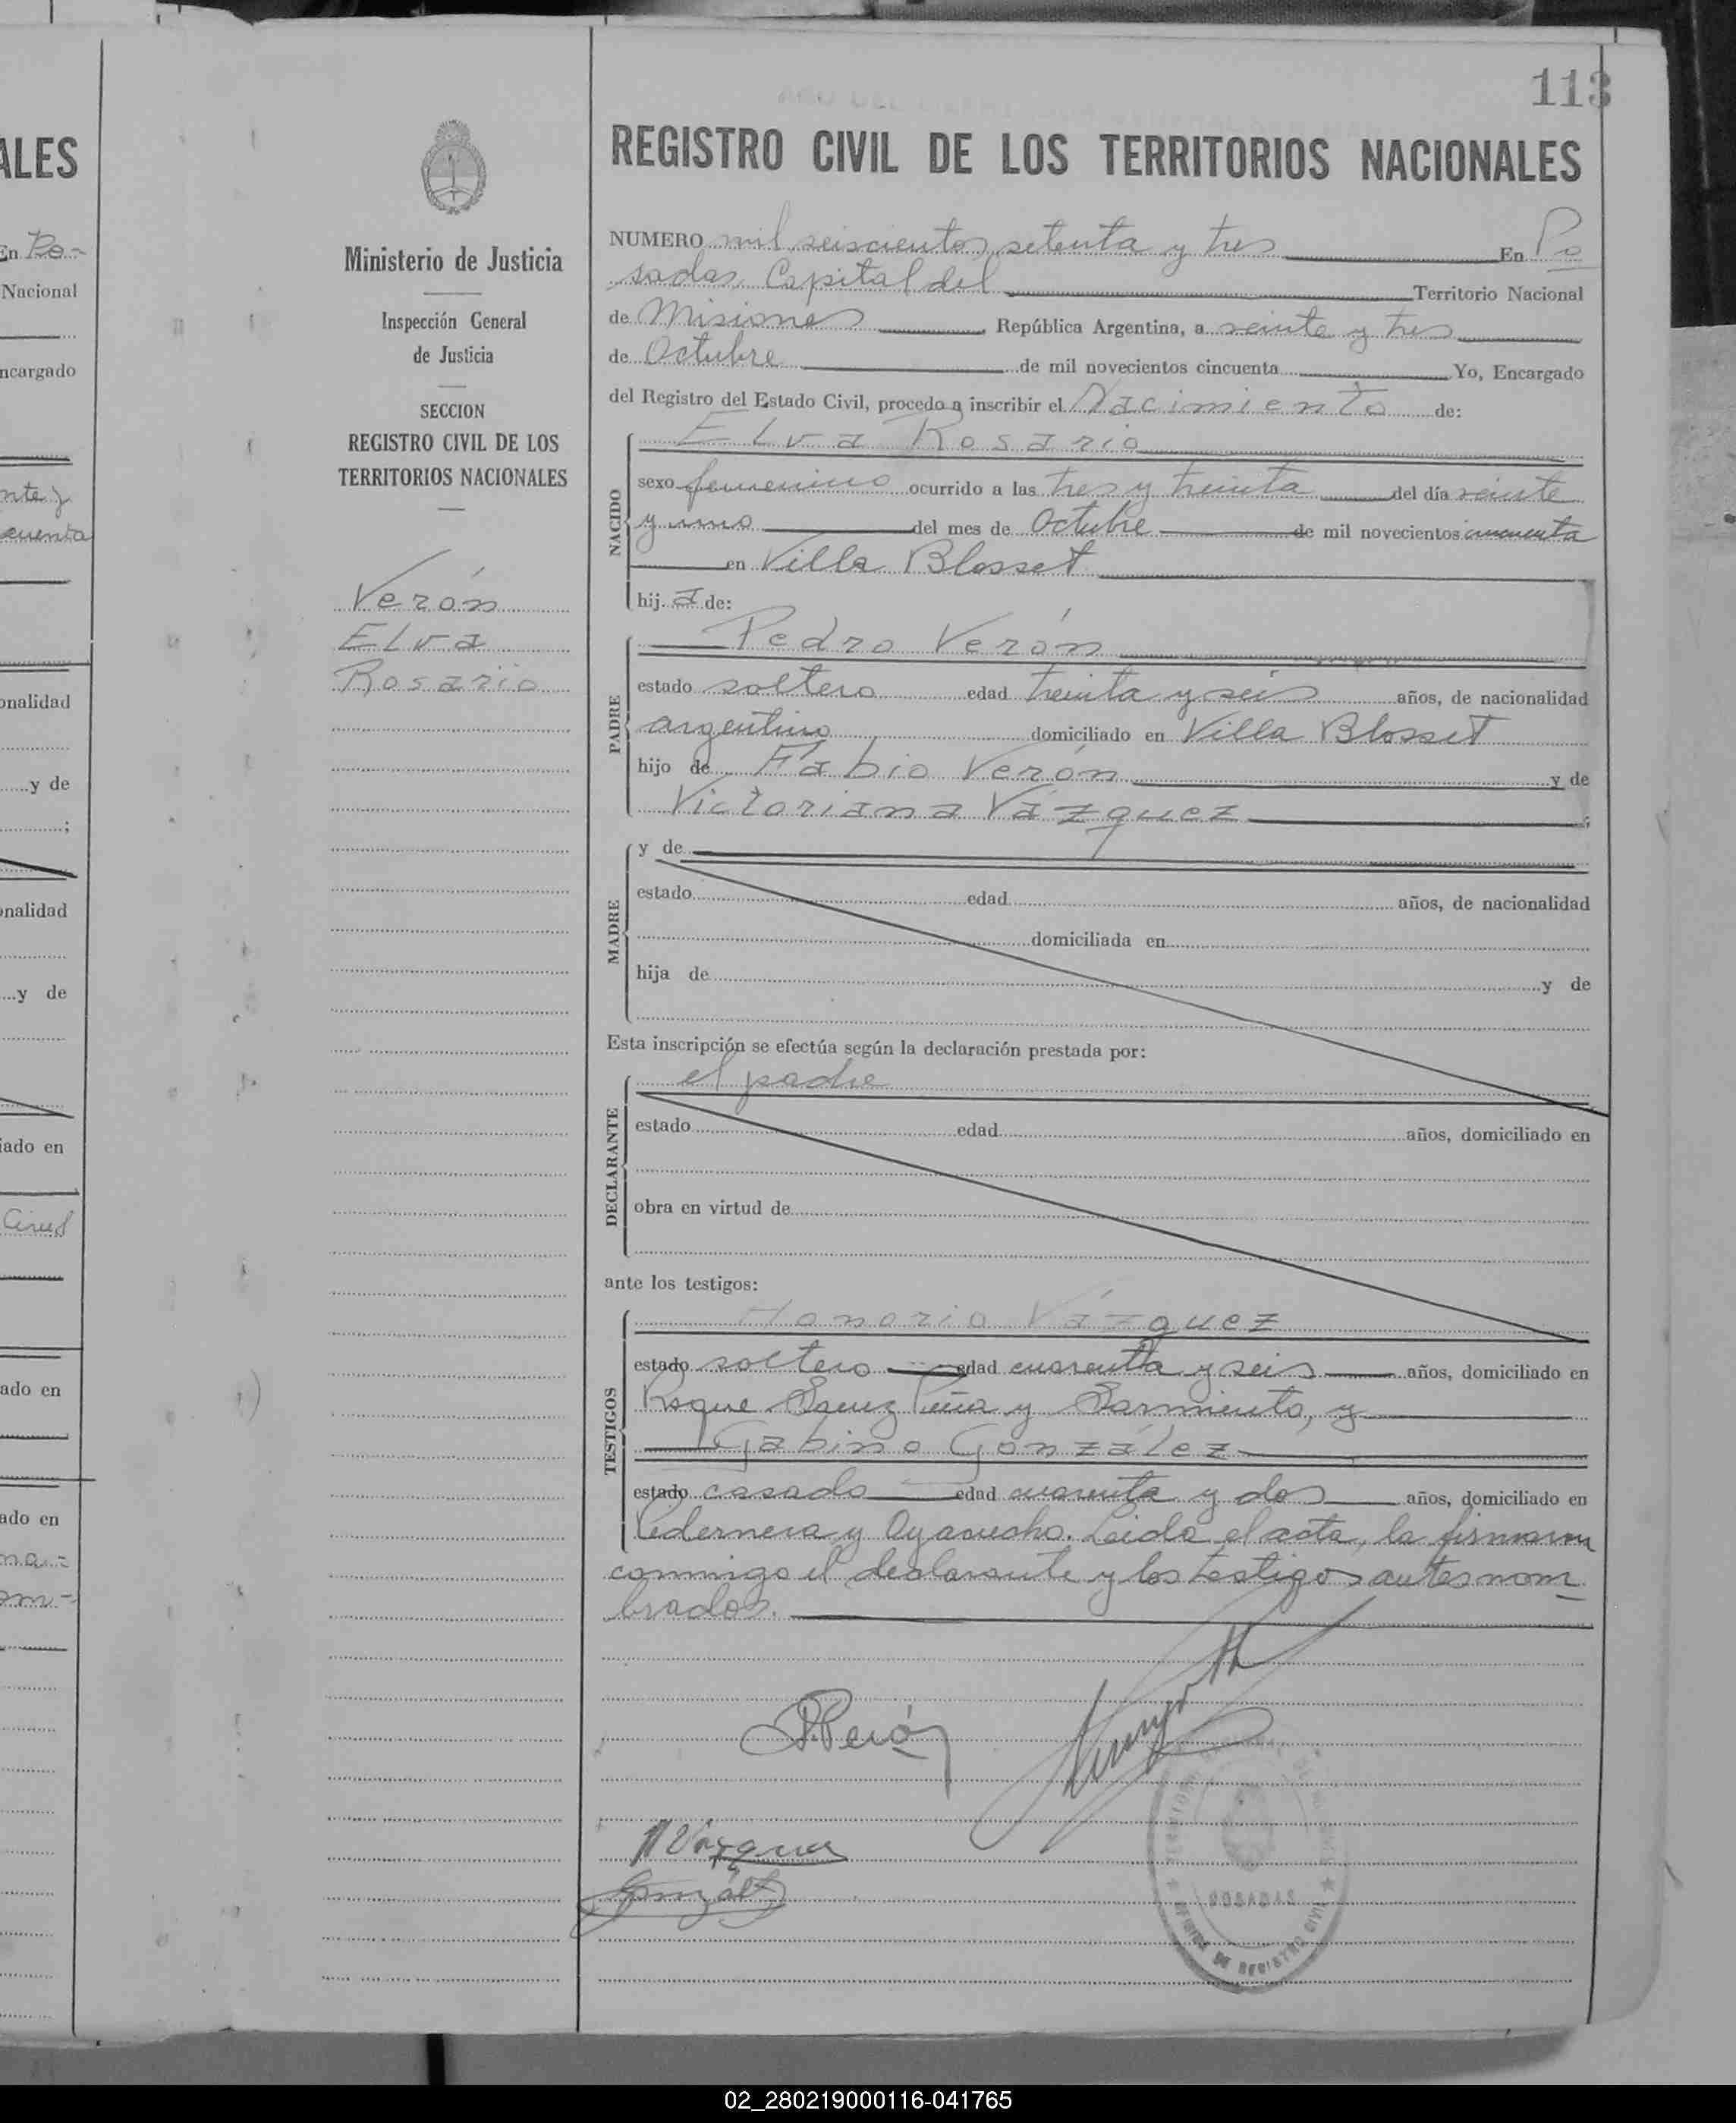 113
REGISTRO CIVIL DE LOS TERRITORIOS NACIONALES
Ministerio de Justicia
Inspección General
de Justicia
SECCION
REGISTRO CIVIL DE LOS
TERRITORIOS NACIONALES
Verón
Elva
Rosario
NUMERO mil seiscientos setenta y tres En Po
sadas, Capital del Territorio Nacional
de Misiones República Argentina, a veinte y tres
de Octubre de mil novecientos cincuenta Yo, Encargado
del Registro del Estado Civil, procedo a inscribir el Nacimiento de:
Elva Rosario
NACIDO
sexo femenino ocurrido a las tres y treinta del día veinte
y uno del mes de Octubre de mil novecientos cincuenta
en Villa Blosset
hij a de:
Pedro Verón
PADRE
estado soltero edad treinta y seis años, de nacionalidad
argentino domiciliado en Villa Blosset
hijo de Fabio Verón y de
Victoriana Vázquez ;
MADRE
y de
estado edad años, de nacionalidad
domiciliada en
hija de y de
Esta inscripción se efectúa según la declaración prestada por:
el padre
DECLARANTE
estado edad años, domiciliado en
obra en virtud de
ante los testigos:
Honorio Vázquez
TESTIGOS
estado soltero edad cuarenta y seis años, domiciliado en
Roque Saenz Peña y Sarmiento, y
Gabino González
estado casado edad cuarenta y dos años, domiciliado en
Pedernera y Ayacucho. Leida el acta, la firmaron
conmigo el declarante y los testigos antes nom
brados.
P. Verón
H Vázquez
González
POSADAS
OFICINA DE REGISTRO CIVIL
ALES
En Po-
Nacional
ncargado
nte y
cuenta
onalidad
y de
;
onalidad
y de
iado en
Civil
ado en
ado en
na-
om-
02_280219000116-041765